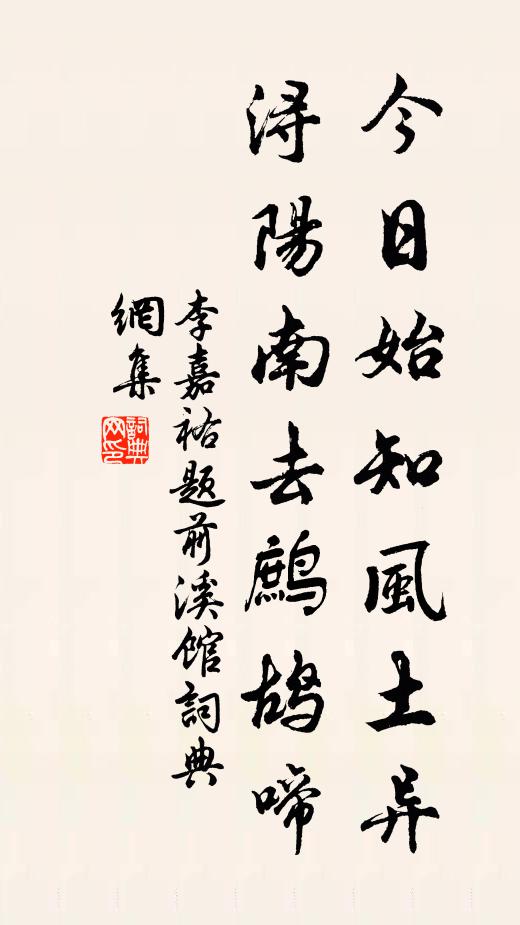 今日始知風土异
浔陽南去鷓鴣啼
李嘉祐題前溪館詞典
網集
詞典网印